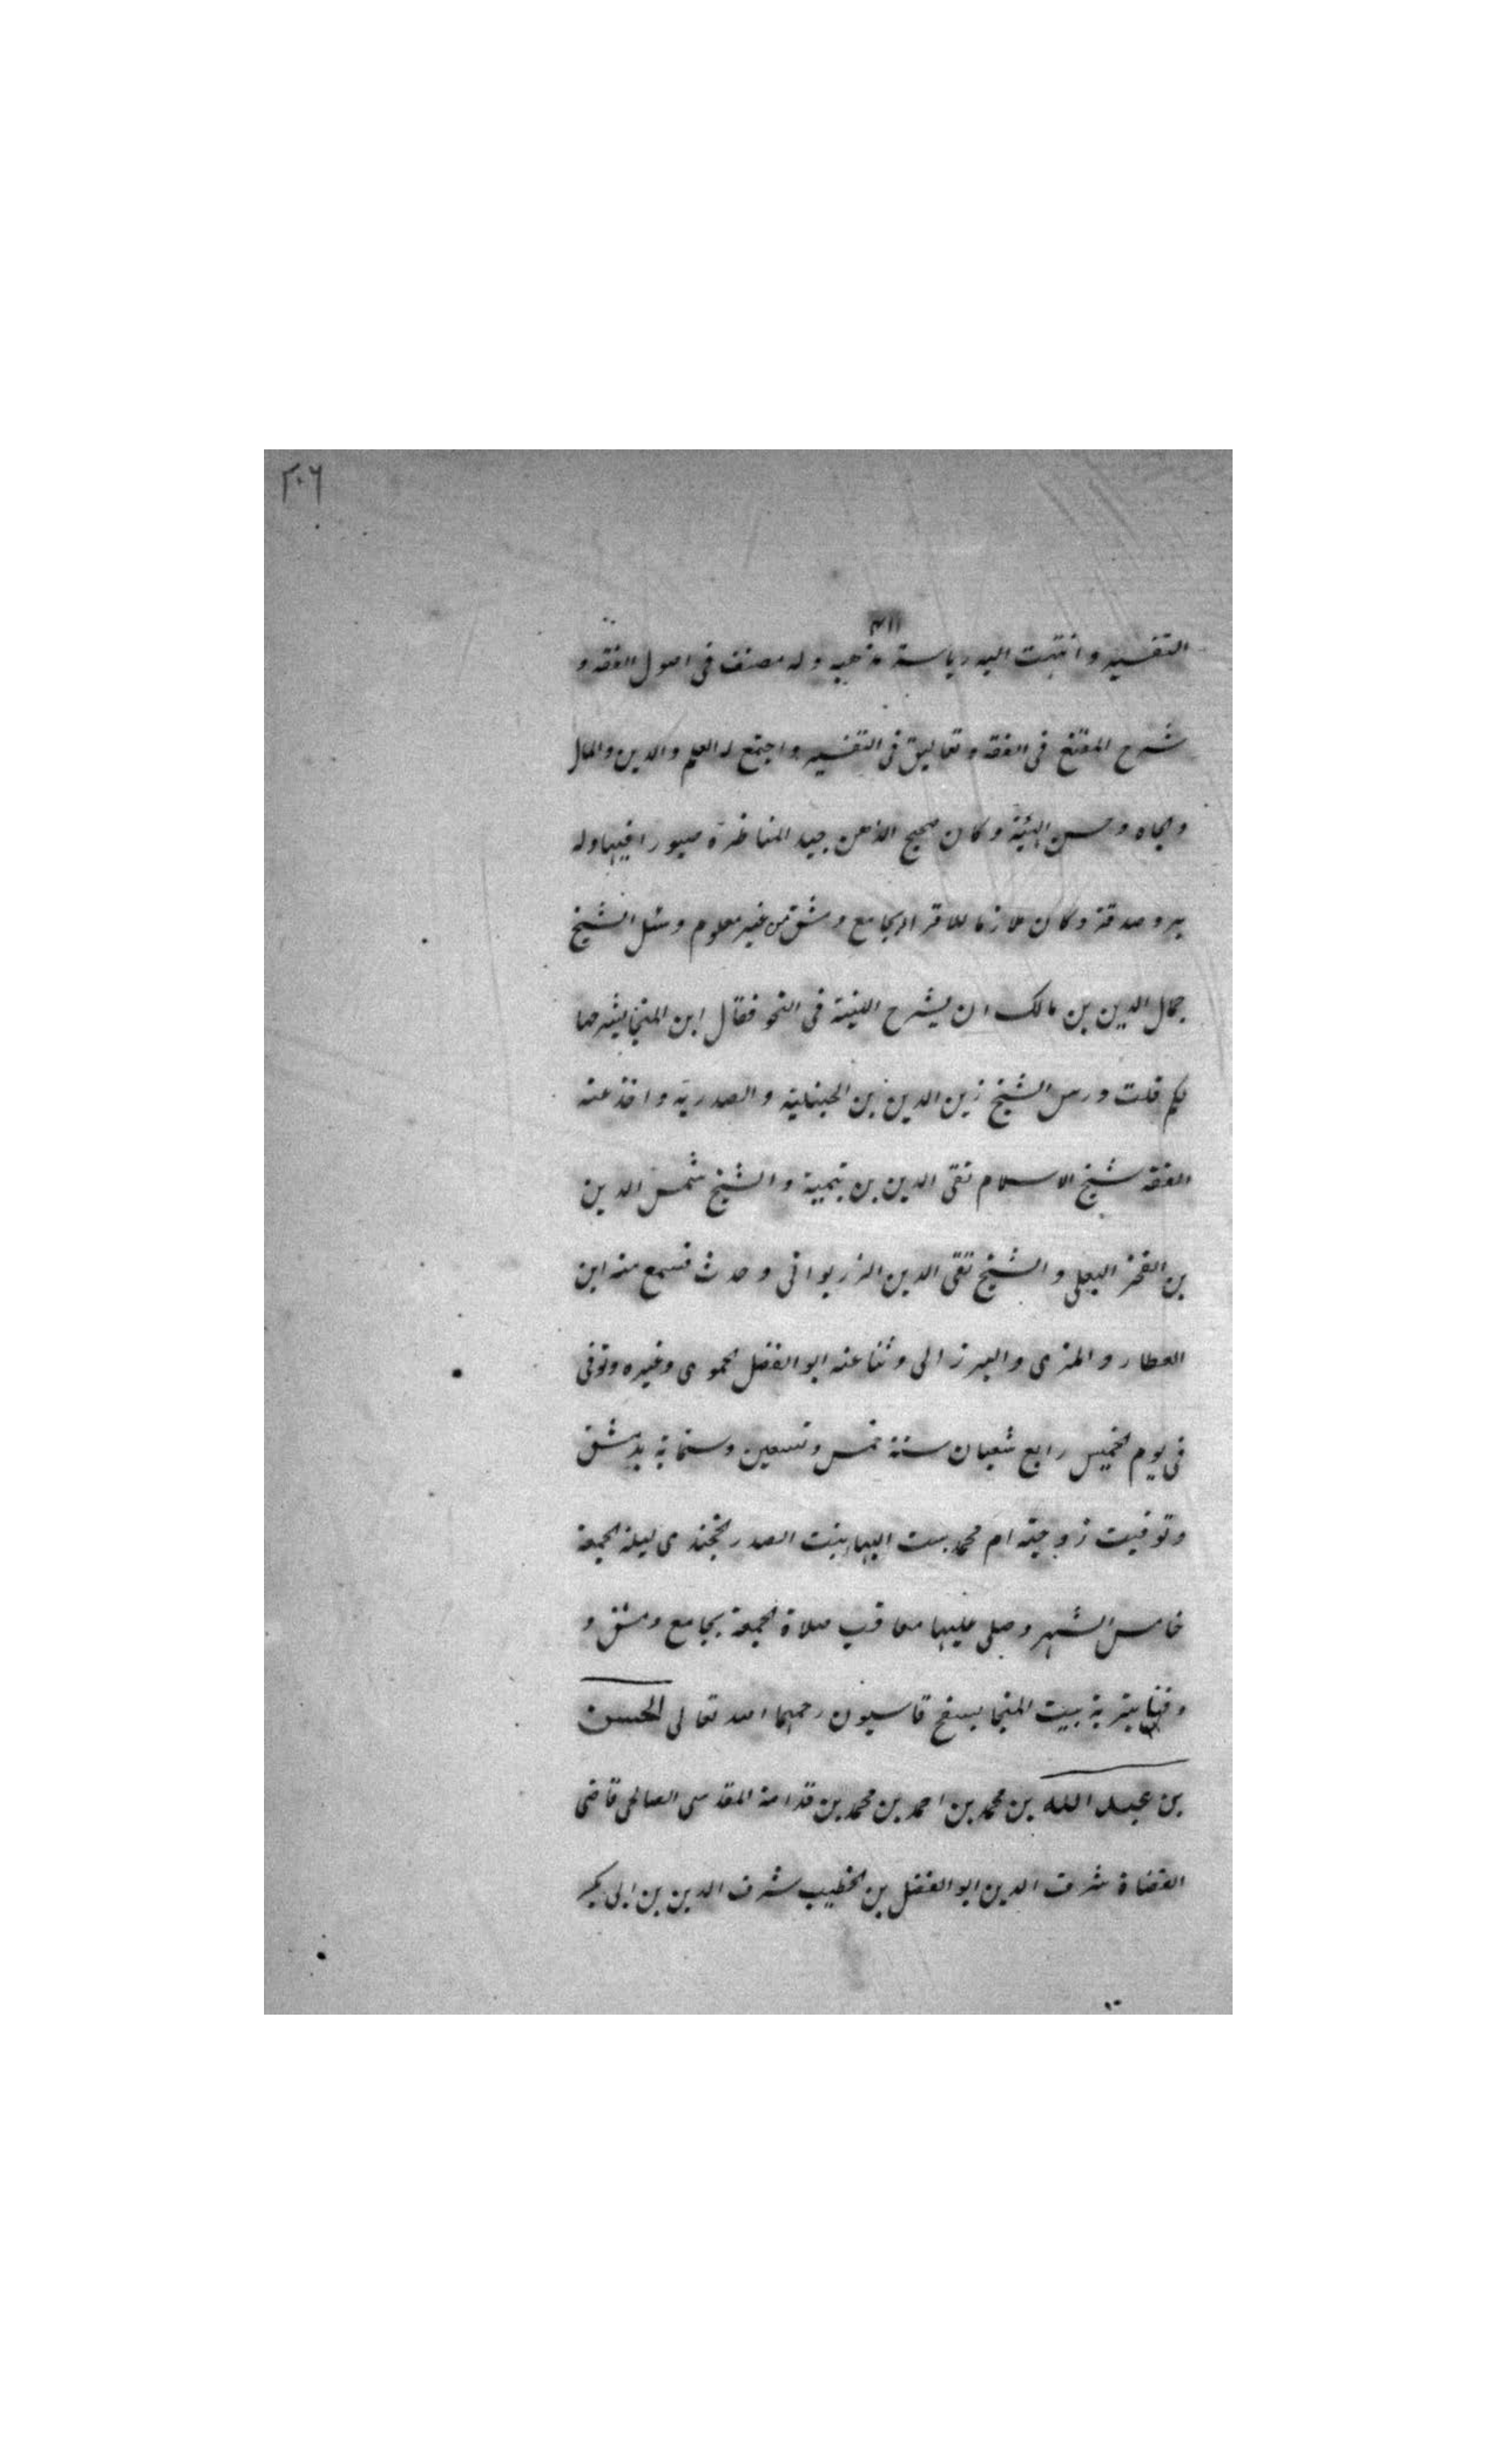 ٢٠٦
٣١١
التفسير وانتهت اليه رياسة مذهبه وله مصنف فى اصول الفقه و
شرح المقنع فى الفقه وتعاليق فى التفسير واجتمع له العلم والدين والمال
والجاه وحسن الهيئة وكان صحيح الذهن جيد المناظرة صبورا فيها وله
بر وصدقة وكان ملازما للاقراء بجامع دمشق من غير معلوم وسئل الشيخ
جمال الدين بن مالك ان يشرح الفيته فى النحو فقال ابن المنجا يشرحها
لكم قلت درس الشيخ زين الدين بن الحنبلية والصدرية واخذ عنه
الفقه شيخ الاسلام تقى الدين بن تيمية والشيخ شمس الدين
بن الفخر البعلى والشيخ تقى الدين الزريرانى وحدث فسمع منه ابن
العطار والمزى والبرزالى وثنا عنه ابو الفضل الحموى وغيره وتوفى
فى يوم الخميس رابع شعبان سنة خمس وتسعين وستماية بدمشق
وتوفيت زوجته ام محمد ست البهاء بنت الصدر الخجندى ليلة الجمعة
خامس الشهر وصلى عليهما معا قرب صلاة الجمعة بجامع دمشق و
دفنا بتربة بيت المنجا بسفح قاسيون رحمهما الله تعالى الحسن
بن عبد الله بن محمد بن احمد بن محمد بن قدامة المقدسى الصالحى قاضى
القضاة شرف الدين ابو الفضل بن الخطيب شرف الدين بن ابى بكر